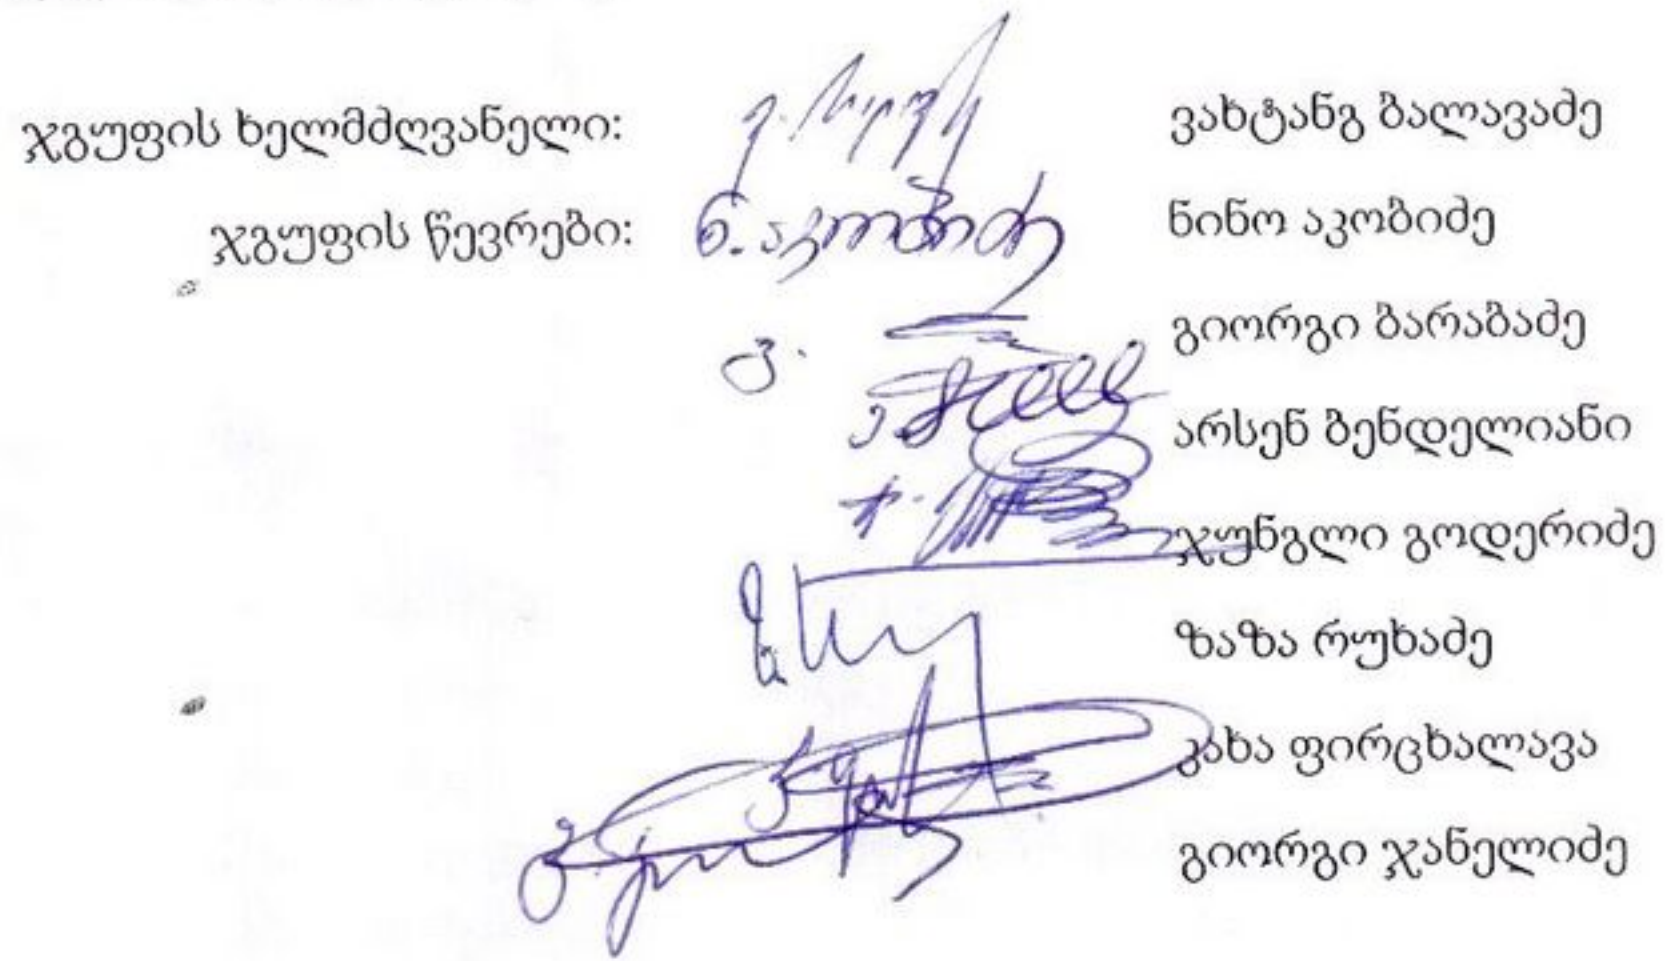 ჯგუფის ხელმძღვანელი: ვახტანგ ბალავაძე
ჯგუფის წევრები: ნ. აკობიძე ნინო აკობიძე
გიორგი ბარაბაძე
არსენ ბენდელიანი
ჯუნგლი გოდერიძე
ზაზა რუხაძე
კახა ფირცხალავა
გიორგი ჯანელიძე